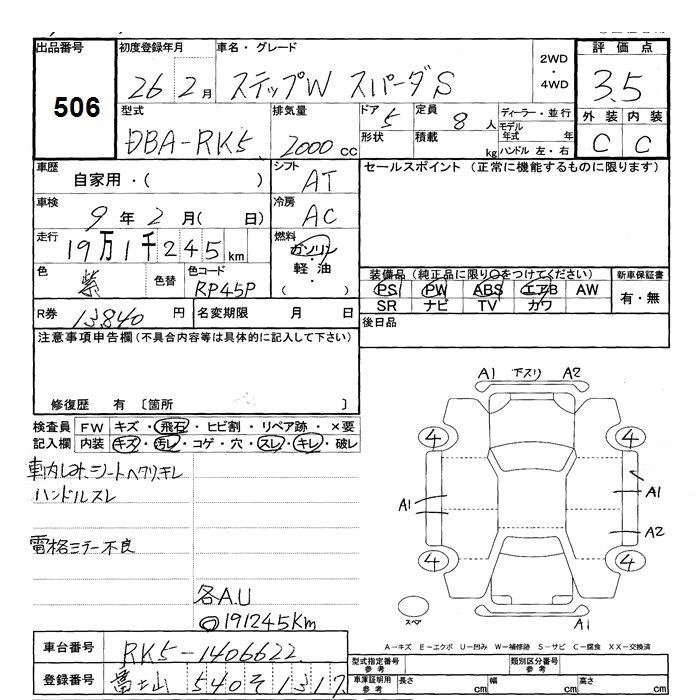 出品番号 初度登録年月 車名・グレード 2WD・4WD 評価点
506 26 2月 ステップW スパーダS 3.5
型式 排気量 ドア 5 定員 8人 ディーラー・並行 外装 内装
DBA-RK5 2000cc 形状 積載 kg モデル年式 年 C C
ハンドル 左・右
車歴 自家用・( ) シフト AT セールスポイント (正常に機能するものに限ります)
車検 9年2月( 日) 冷房 AC
走行 19万1千245km 燃料 ガソリン・軽油・( )
色 紫 色替 色コード RP45P
装備品 (純正品に限り○をつけてください) 新車保証書
PS PW ABS エアB AW 有・無
SR ナビ TV カワ
R券 13,840円 名変期限 月 日 後日品
注意事項申告欄 (不具合内容等は具体的に記入して下さい)
修復歴 有 〔箇所 〕
検査員 FW キズ・飛石・ヒビ割・リペア跡・×要
記入欄 内装 キズ・汚レ・コゲ・穴・スレ・キレ・破レ
車内しみ、シートヘタリ、キレ
ハンドルスレ
電格ミラー不良
各A.U
◎191245Km
A1 下スリ A2
4 4
A1 A1
A2
4 4
スペア A1
A-キズ E-エクボ U-凹み W-補修跡 S-サビ C-腐食 XX-交換済
車台番号 RK5-1406622
型式指定番号 参考 類別区分番号 参考
登録番号 富士山 540そ1317
車庫証明用 参考 長さ cm 幅 cm 高さ cm